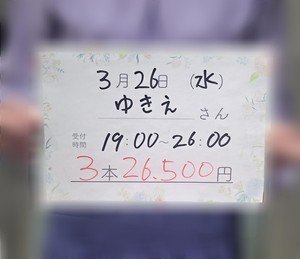 3月26日 (水)
ゆきえ さん
受付時間 19:00~26:00
3本 26.500円